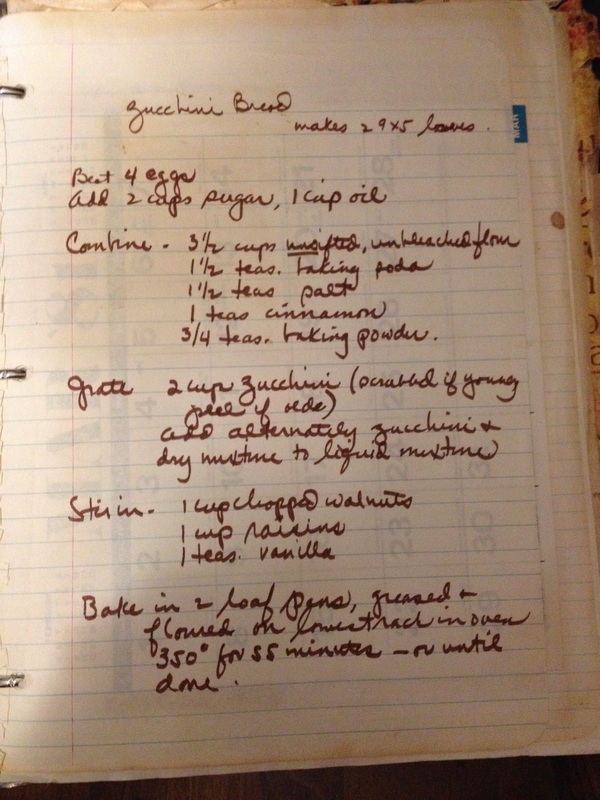 Zucchini Bread
makes 2 9x5 loaves.
MAR
Beat 4 eggs
Add 2 cups sugar, 1 cup oil
Combine - 3 1/2 cups unsifted, unbleached flour
1 1/2 teas. baking soda
1 1/2 teas salt
1 teas cinnamon
3/4 teas. baking powder.
Grate 2 cup zucchini (scrubbed if young
peel if olde)
add alternately zucchini +
dry mixture to liquid mixture
Stir in - 1 cup chopped walnuts
1 cup raisins
1 teas. vanilla
Bake in 2 loaf pans, greased +
floured on lowest rack in oven
350° for 55 minutes - or until
done.